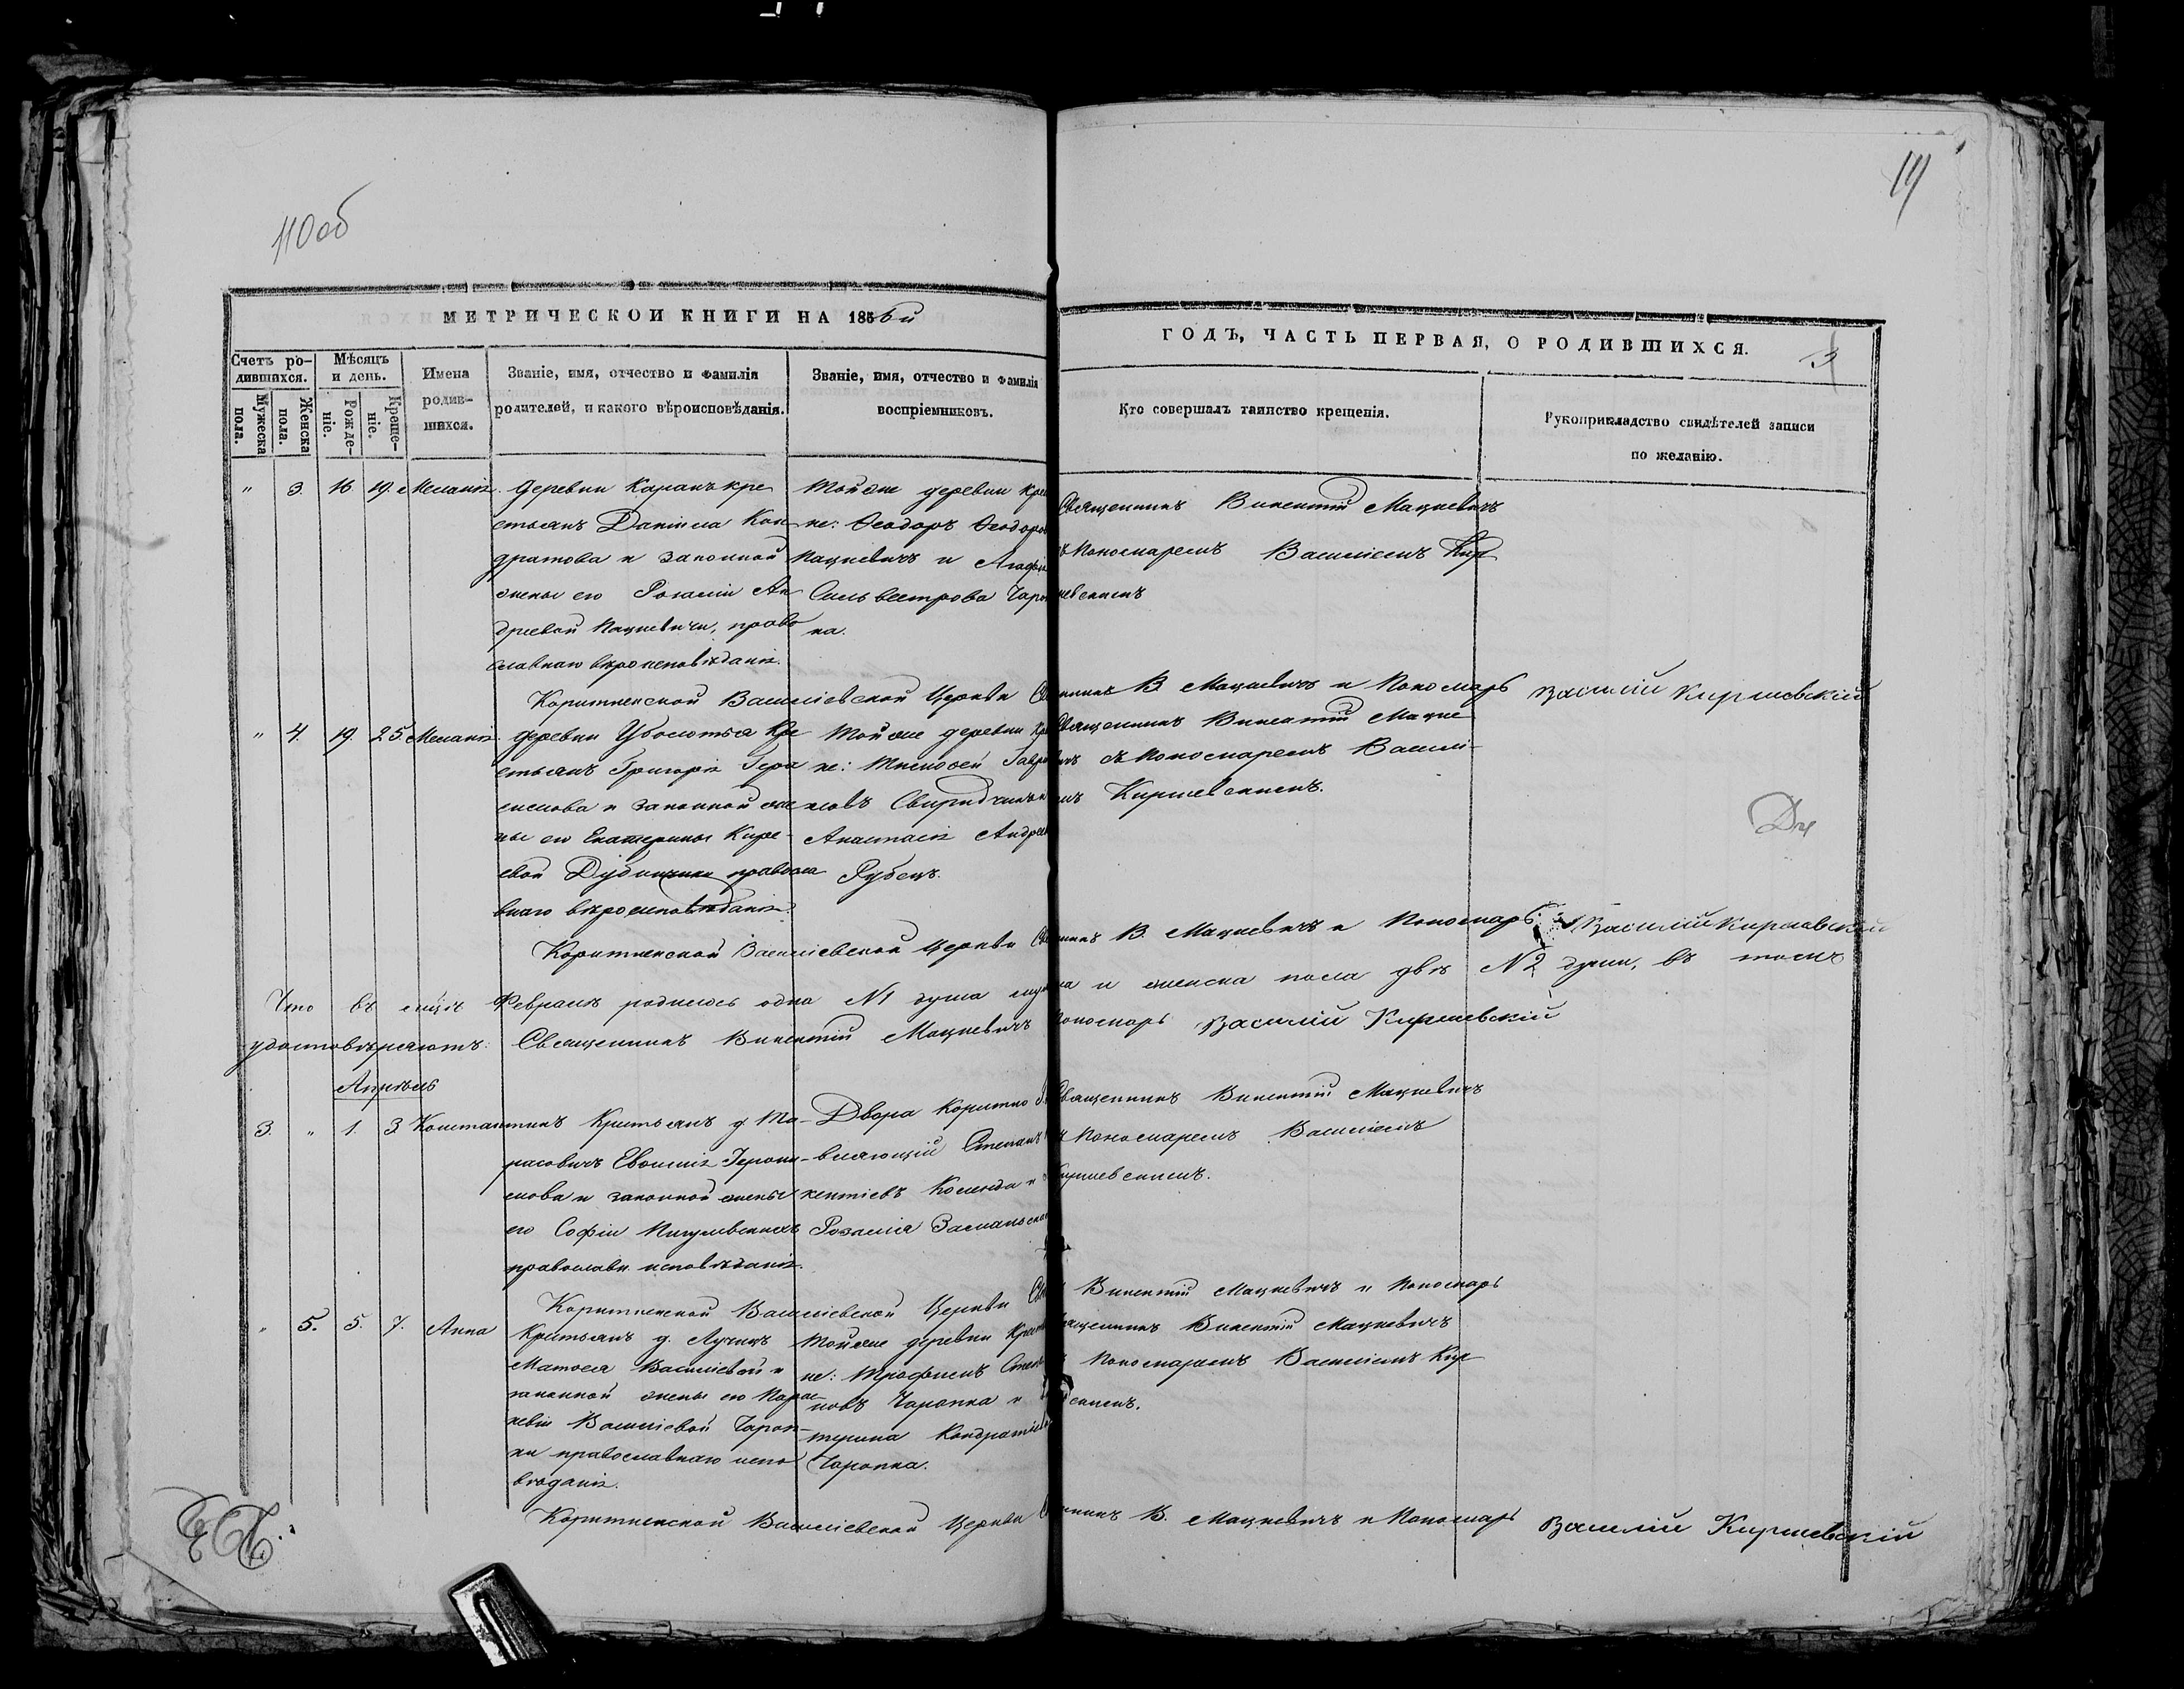 110об
111
МЕТРИЧЕСКОЙ КНИГИ НА 1856й
ГОДЪ, ЧАСТЬ ПЕРВАЯ, О РОДИВШИХСЯ.
3
Счетъ ро-
дившихся.
Мужеска
пола.
Женска
пола.
Мѣсяцъ
и день.
Рожде-
ніе.
Креще-
ніе.
Имена
родив-
шихся.
Званіе, имя, отчество и фамилія
родителей, и какого вѣроисповѣданія.
Званіе, имя, отчество и фамилія
воспріемниковъ.
Кто совершалъ таинство крещенія.
Рукоприкладство свидѣтелей записи
по желанію.
" 3. 16. 19. Меланія.
деревни Каранъ кре
стьянъ Даніила Кон
дратова и законной
жены его Розаліи Ан
дреевой Мацкевичи, право
славнаго вѣроисповѣданія.
Тойже деревни кре
не: Ѳеодоръ Ѳеодоро
Мацкевичъ и
Сильвестрова
ка.
Священникъ Викентій Мацкевичъ
съ Пономаремъ Василіемъ Кир
шевскимъ
Коритненской Василіевской Церкви
В. Мацкевичъ и Пономарь Василій Киршевскій
" 4. 19. 25. Меланія.
деревни Уболотья Кре
стьянъ Григорія Гера
симова и законной же
ны его Екатерины Кире-
евой православ
внаго вѣроисповѣданія.
Тойже деревни
не: Тимоѳей Гаври
ловъ
Анастасія Андрее
Рубецъ.
Священникъ Викентій Мацке
вичъ съ Пономаремъ Васили-
емъ Киршевскимъ.
Коритненской Василіевской Церкви
В. Мацкевичъ и Пономарь Василій Киршевскій
Что въ мцѣ Февралѣ родилось одна № 1 душа и женска пола двѣ № 2 души, въ томъ
удостовѣряютъ: Священникъ Викентій Мацкевичъ Пономарь Василій Киршевскій
Апрѣль
3. " 1. 3. Константинъ
Крестьянъ д. Та-
расовичъ Евфимія Герони-
мова и законной жены
его Софіи
православн. исповѣданія.
Двора Коритно
вляющій Степанъ
кентіевъ и
Розалія
Священникъ Викентій Мацкевичъ
съ Пономаремъ Василіемъ
Киршевскимъ.
Коритненской Василіевской Церкви
Викентій Мацкевичъ и Пономарь
" 5. 5. 7. Анна
Крестьянъ д. Лучицъ
Матвея Василіевой и
законной жены его Парас-
кевіи Василіевой Чароп-
ки православнаго испо
вѣданія.
Тойже деревни
не: Трофимъ Степа
новъ Чаропка и
терина Кондратіева
Чаропка.
Священникъ Викентій Мацкевичъ
съ Пономаремъ Василіемъ Кир
шевскимъ.
Коритненской Василіевской Церкви
В. Мацкевичъ и Пономарь Василій Киршевскій